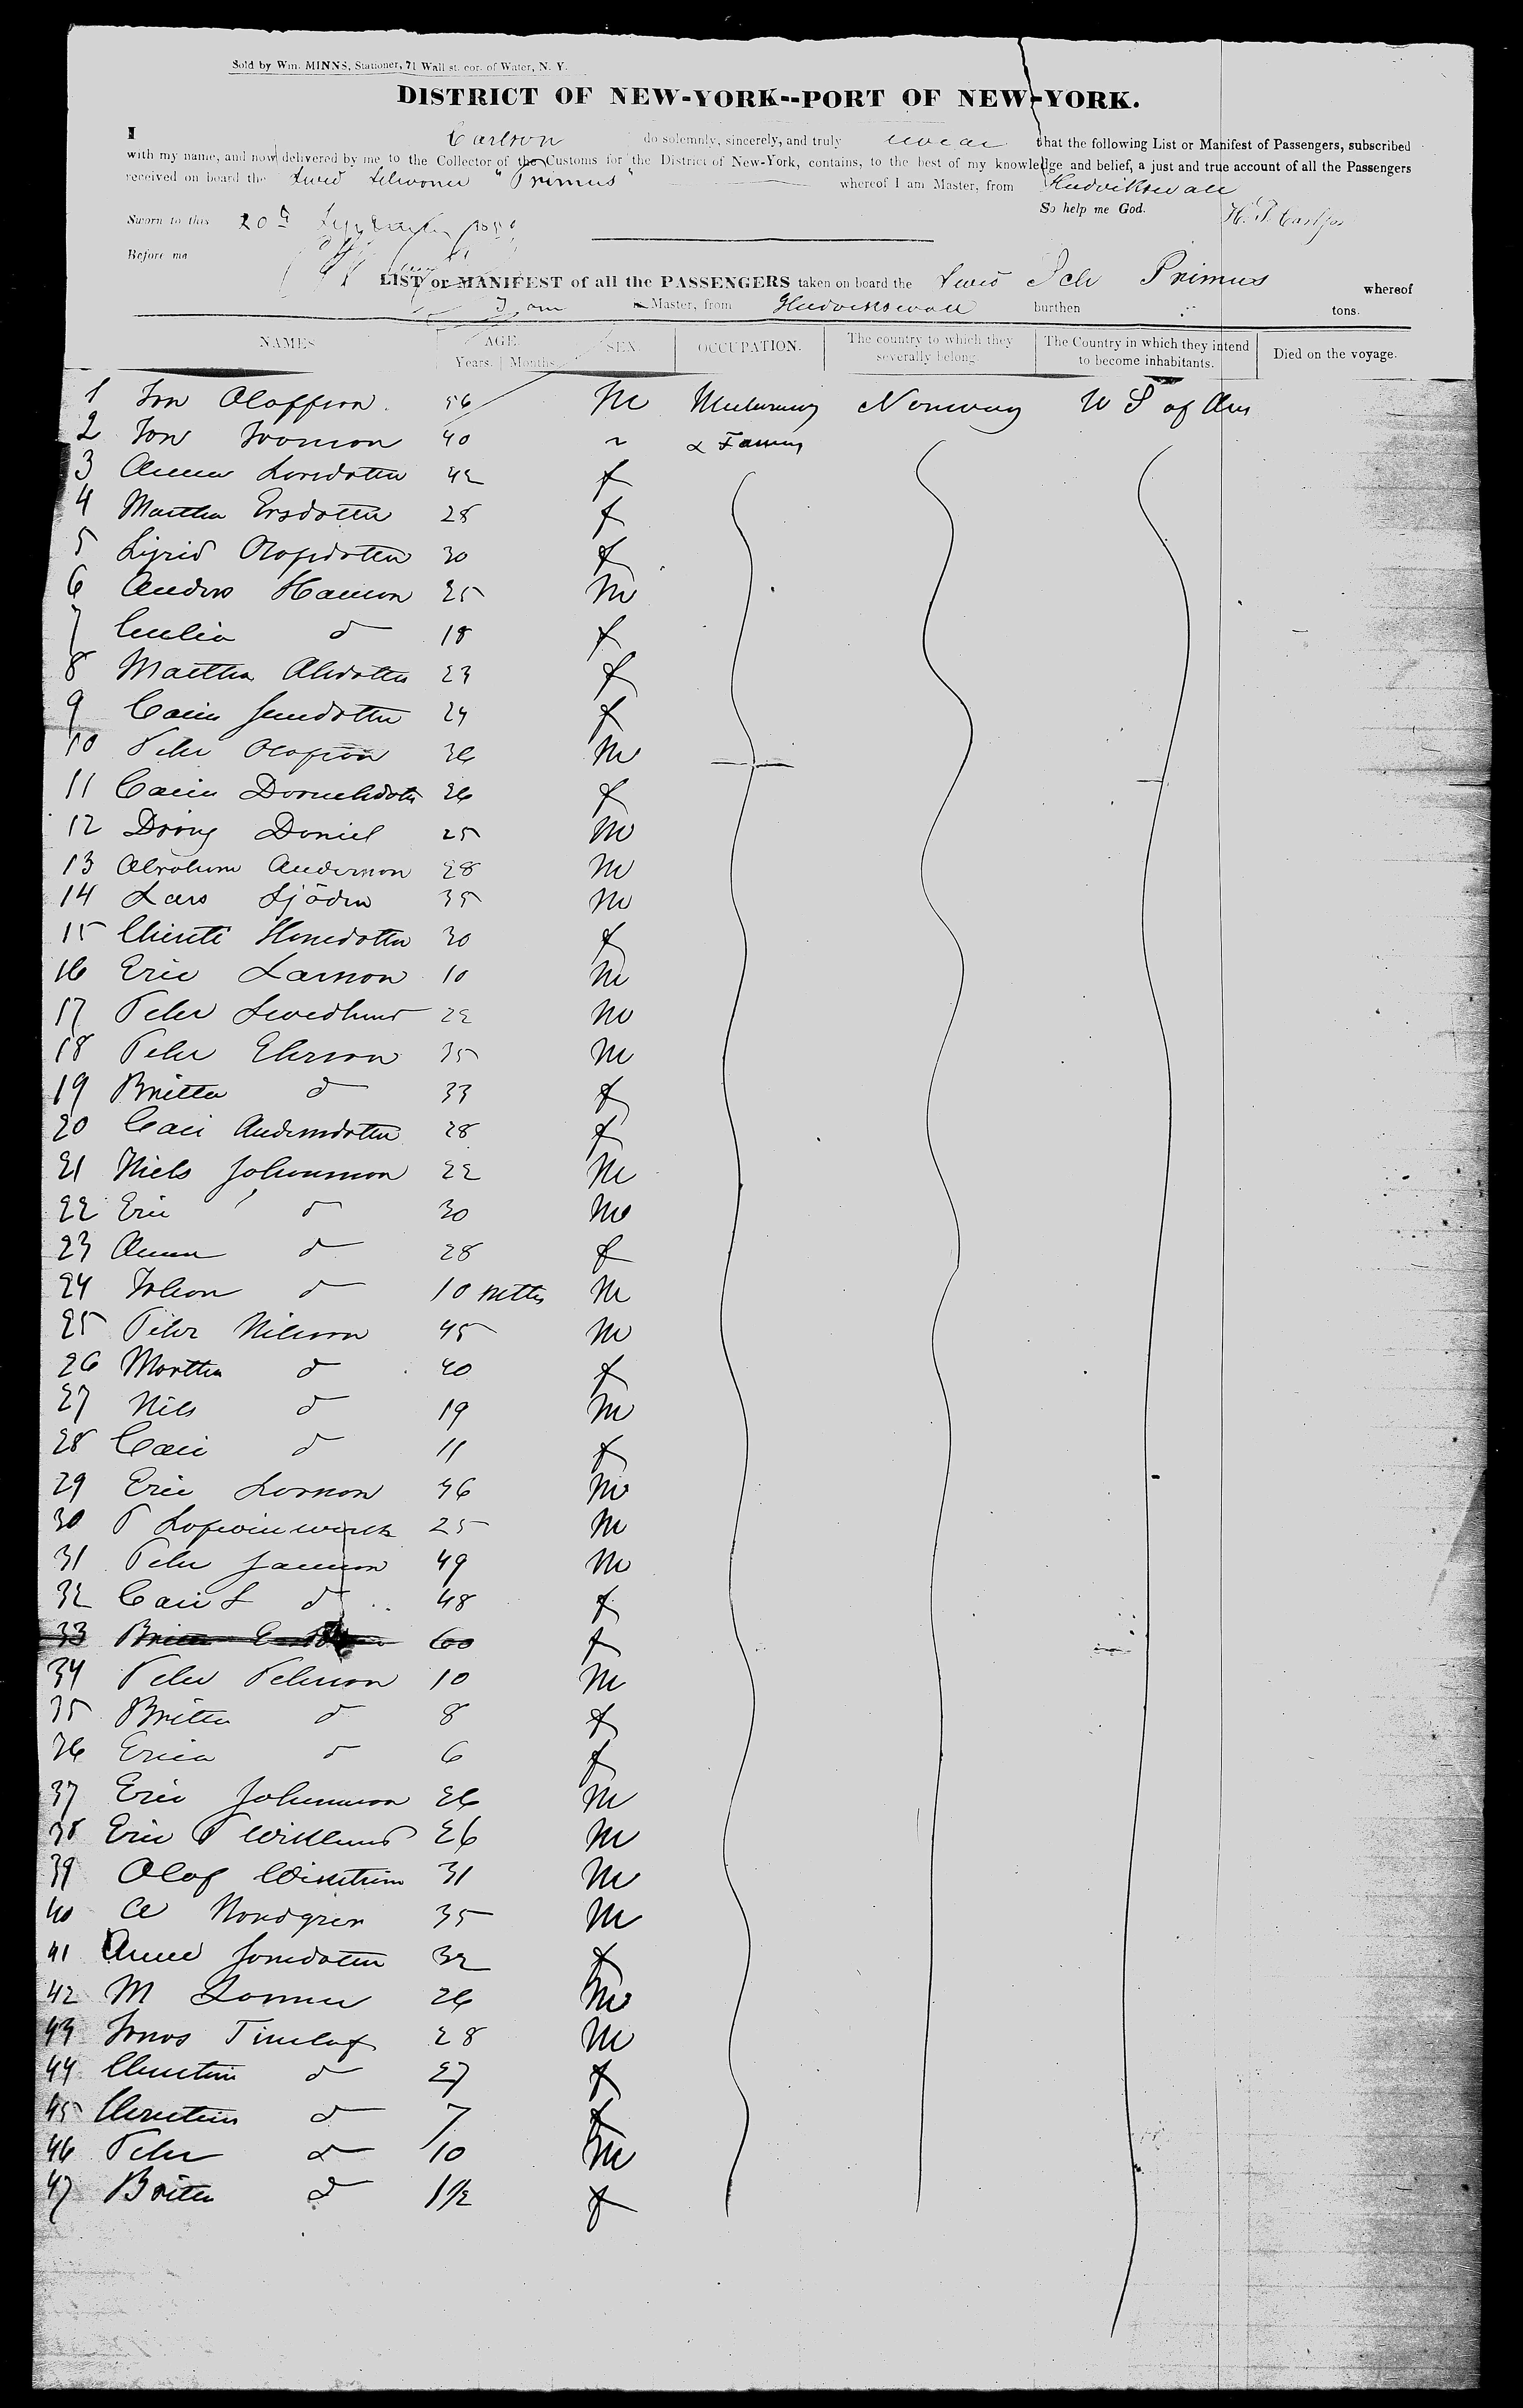 Sold by Wm. MINNS, Stationer, 71 Wall st. cor. of Water, N. Y.
DISTRICT OF NEW-YORK--PORT OF NEW-YORK.
I Carlson do solemnly, sincerely, and truly swear that the following List or Manifest of Passengers, subscribed
with my name, and now delivered by me to the Collector of the Customs for the District of New-York, contains, to the best of my knowledge and belief, a just and true account of all the Passengers
received on board the Swed Schooner "Primus" whereof I am Master, from Hudvikswall
So help me God. H. P. Carlson
Sworn to this 20th September 1850
Before me
LIST or MANIFEST of all the PASSENGERS taken on board the Swed Sch Primus whereof
Master, from Hudvikswall burthen tons.
NAMES AGE. Years. Months. SEX. OCCUPATION. The country to which they severally belong. The Country in which they intend to become inhabitants. Died on the voyage.
1 Jon Oloffson 56 M Norway U S of Am
2 Jon 40 & Farmers
3 Anna Larsdotter 42 f
4 Martha Ersdotter 28 f
5 Sigrid Olofsdotter 30 f
6 Anders Hanson 25 M
7 Cecilia d 18 f
8 Martha Olsdotter 23 f
9 Carin Jonsdotter 24 f
10 Peter Olofson 36 M
11 Carin 26 f
12 Daniel 25 M
13 Abraham Anderson 28 M
14 Lars Sjödin 35 M
15 Hansdotter 30 f
16 Eric Larson 10 M
17 Peter Swedlund 22 M
18 Peter Ekerson 35 M
19 Britta d 33 f
20 Cari Andersdotter 28 f
21 Niels Johannson 22 M
22 Eric d 30 M
23 Anna d 28 f
24 Johan d 10 mths M
25 Peter Nilsson 45 M
26 Martha d 40 f
27 Nils d 19 M
28 Cari d 11 f
29 Eric Larson 46 M
30 P 25 M
31 Peter Janson 49 M
32 Cari S d 48 f
33 Britta 60 f
34 Peter Peterson 10 M
35 Britta d 8 f
36 Erica d 6 f
37 Eric Johannson 26 M
38 Eric P Wicklund 26 M
39 Olof 31 M
40 A Nordgren 35 M
41 Anna Jonsdotter 32 f
42 M 26 M
43 Jonas Timlof 28 M
44 Christin d 27 f
45 Christin d 7 f
46 Peter d 10 M
47 Britta d 1 1/2 f